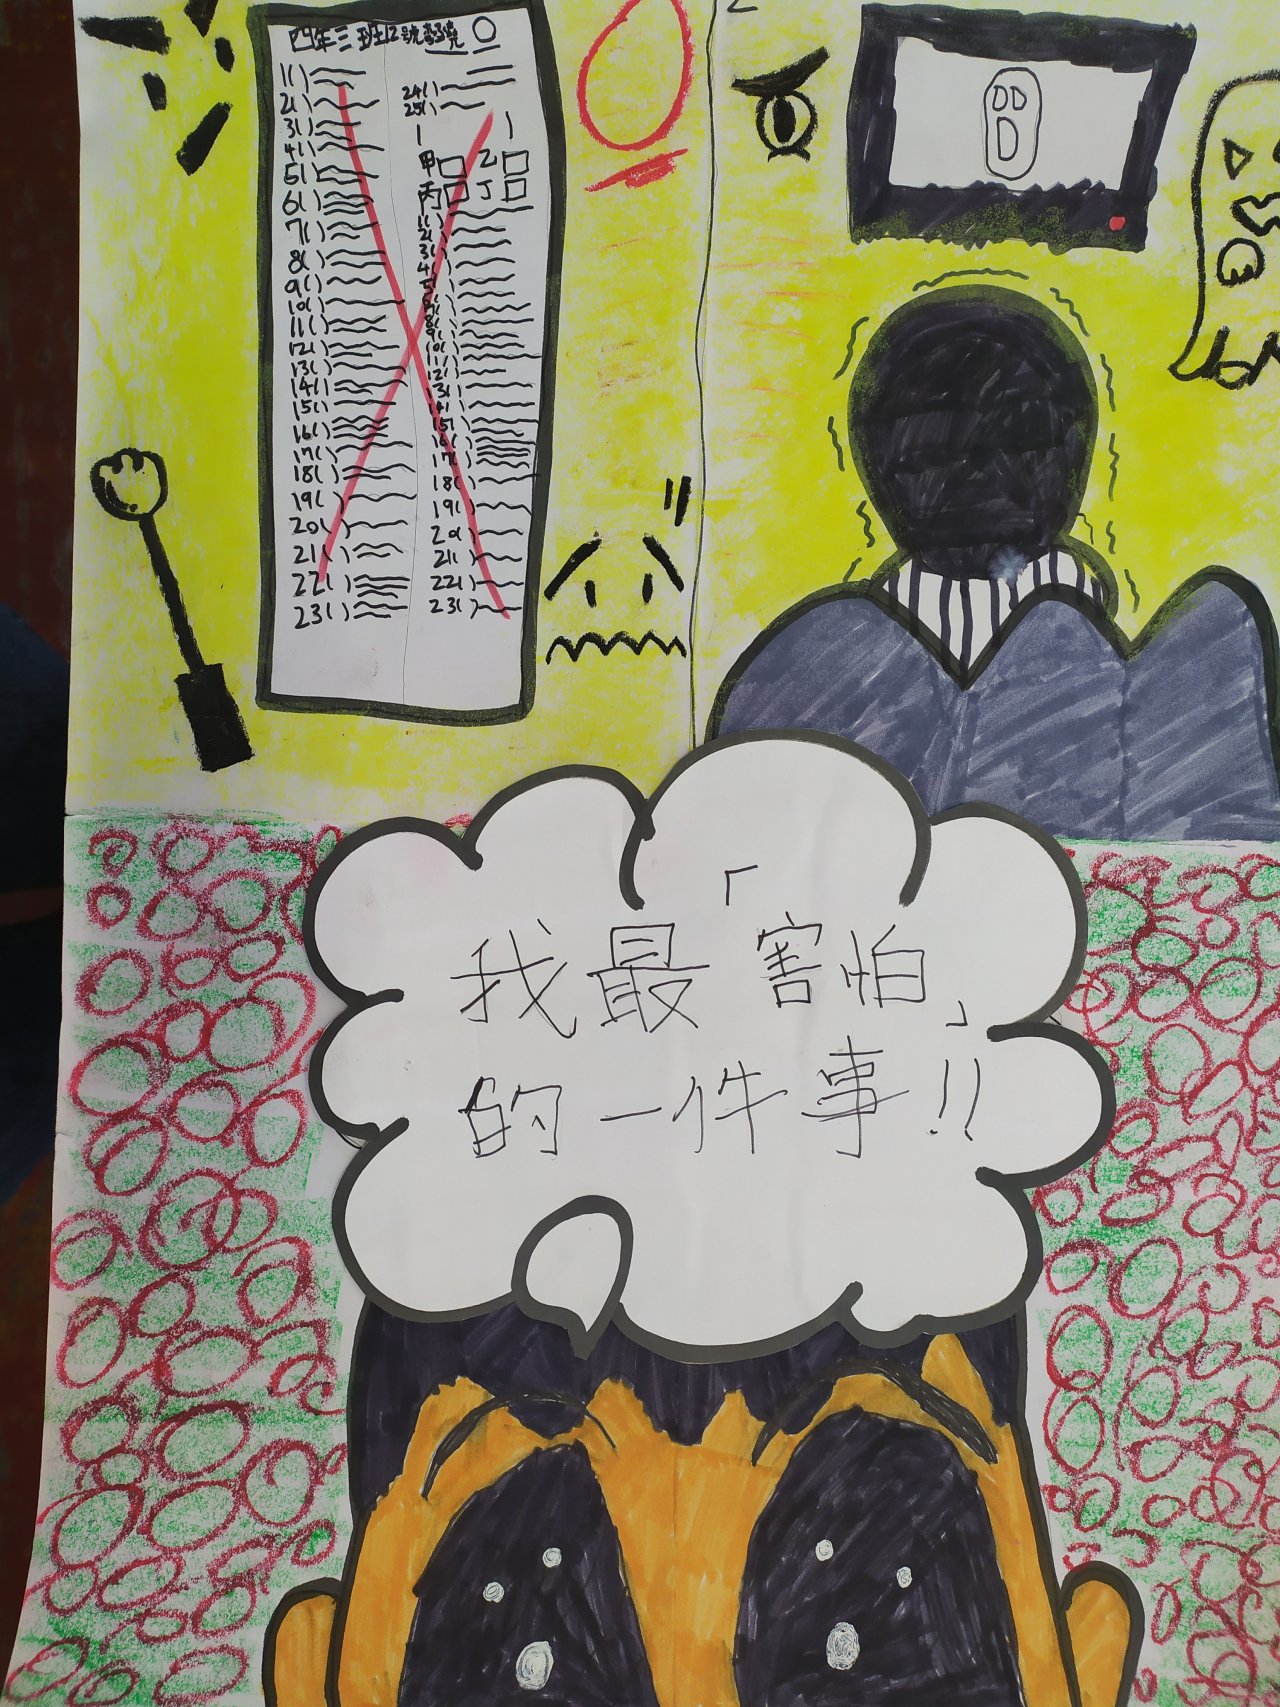 四年三班12號
1( )
2( )
3( )
4( )
5( )
6( )
7( )
8( )
9( )
10( )
11( )
12( )
13( )
14( )
15( )
16( )
17( )
18( )
19( )
20( )
21( )
22( )
23( )
24( )
25( )
甲 乙
丙 丁
1( )
2( )
3( )
4( )
5( )
8( )
9( )
10( )
11( )
12( )
13( )
14( )
15( )
16( )
17( )
18( )
19( )
20( )
21( )
22( )
23( )
DD
D
我最「害怕」
的一件事!!